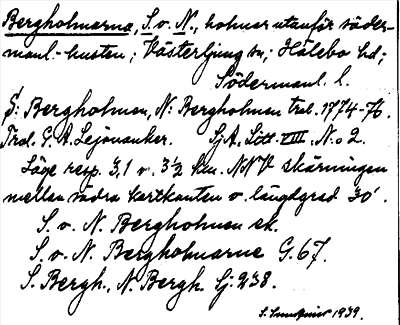 Bergholmarna, S. o. N., holmar utanför söder-
manl.-kusten; Västerljung sn; Hölebo hd;
Södermanl. l.
S: Bergholmen, N: Bergholmen trol. 1774-76.
Trol. G. A. Lejonanker. SjA, Litt. VIII, No 2.
Läge resp. 3,1 o. 3½ km. NNV skärningen
mellan södra kartkanten o. längdgrad 30'.
S. o. N. Bergholmen ek.
S. o. N. Bergholmarne G. 67.
S. Bergh., N. Bergh. Sj: 238.
1939.